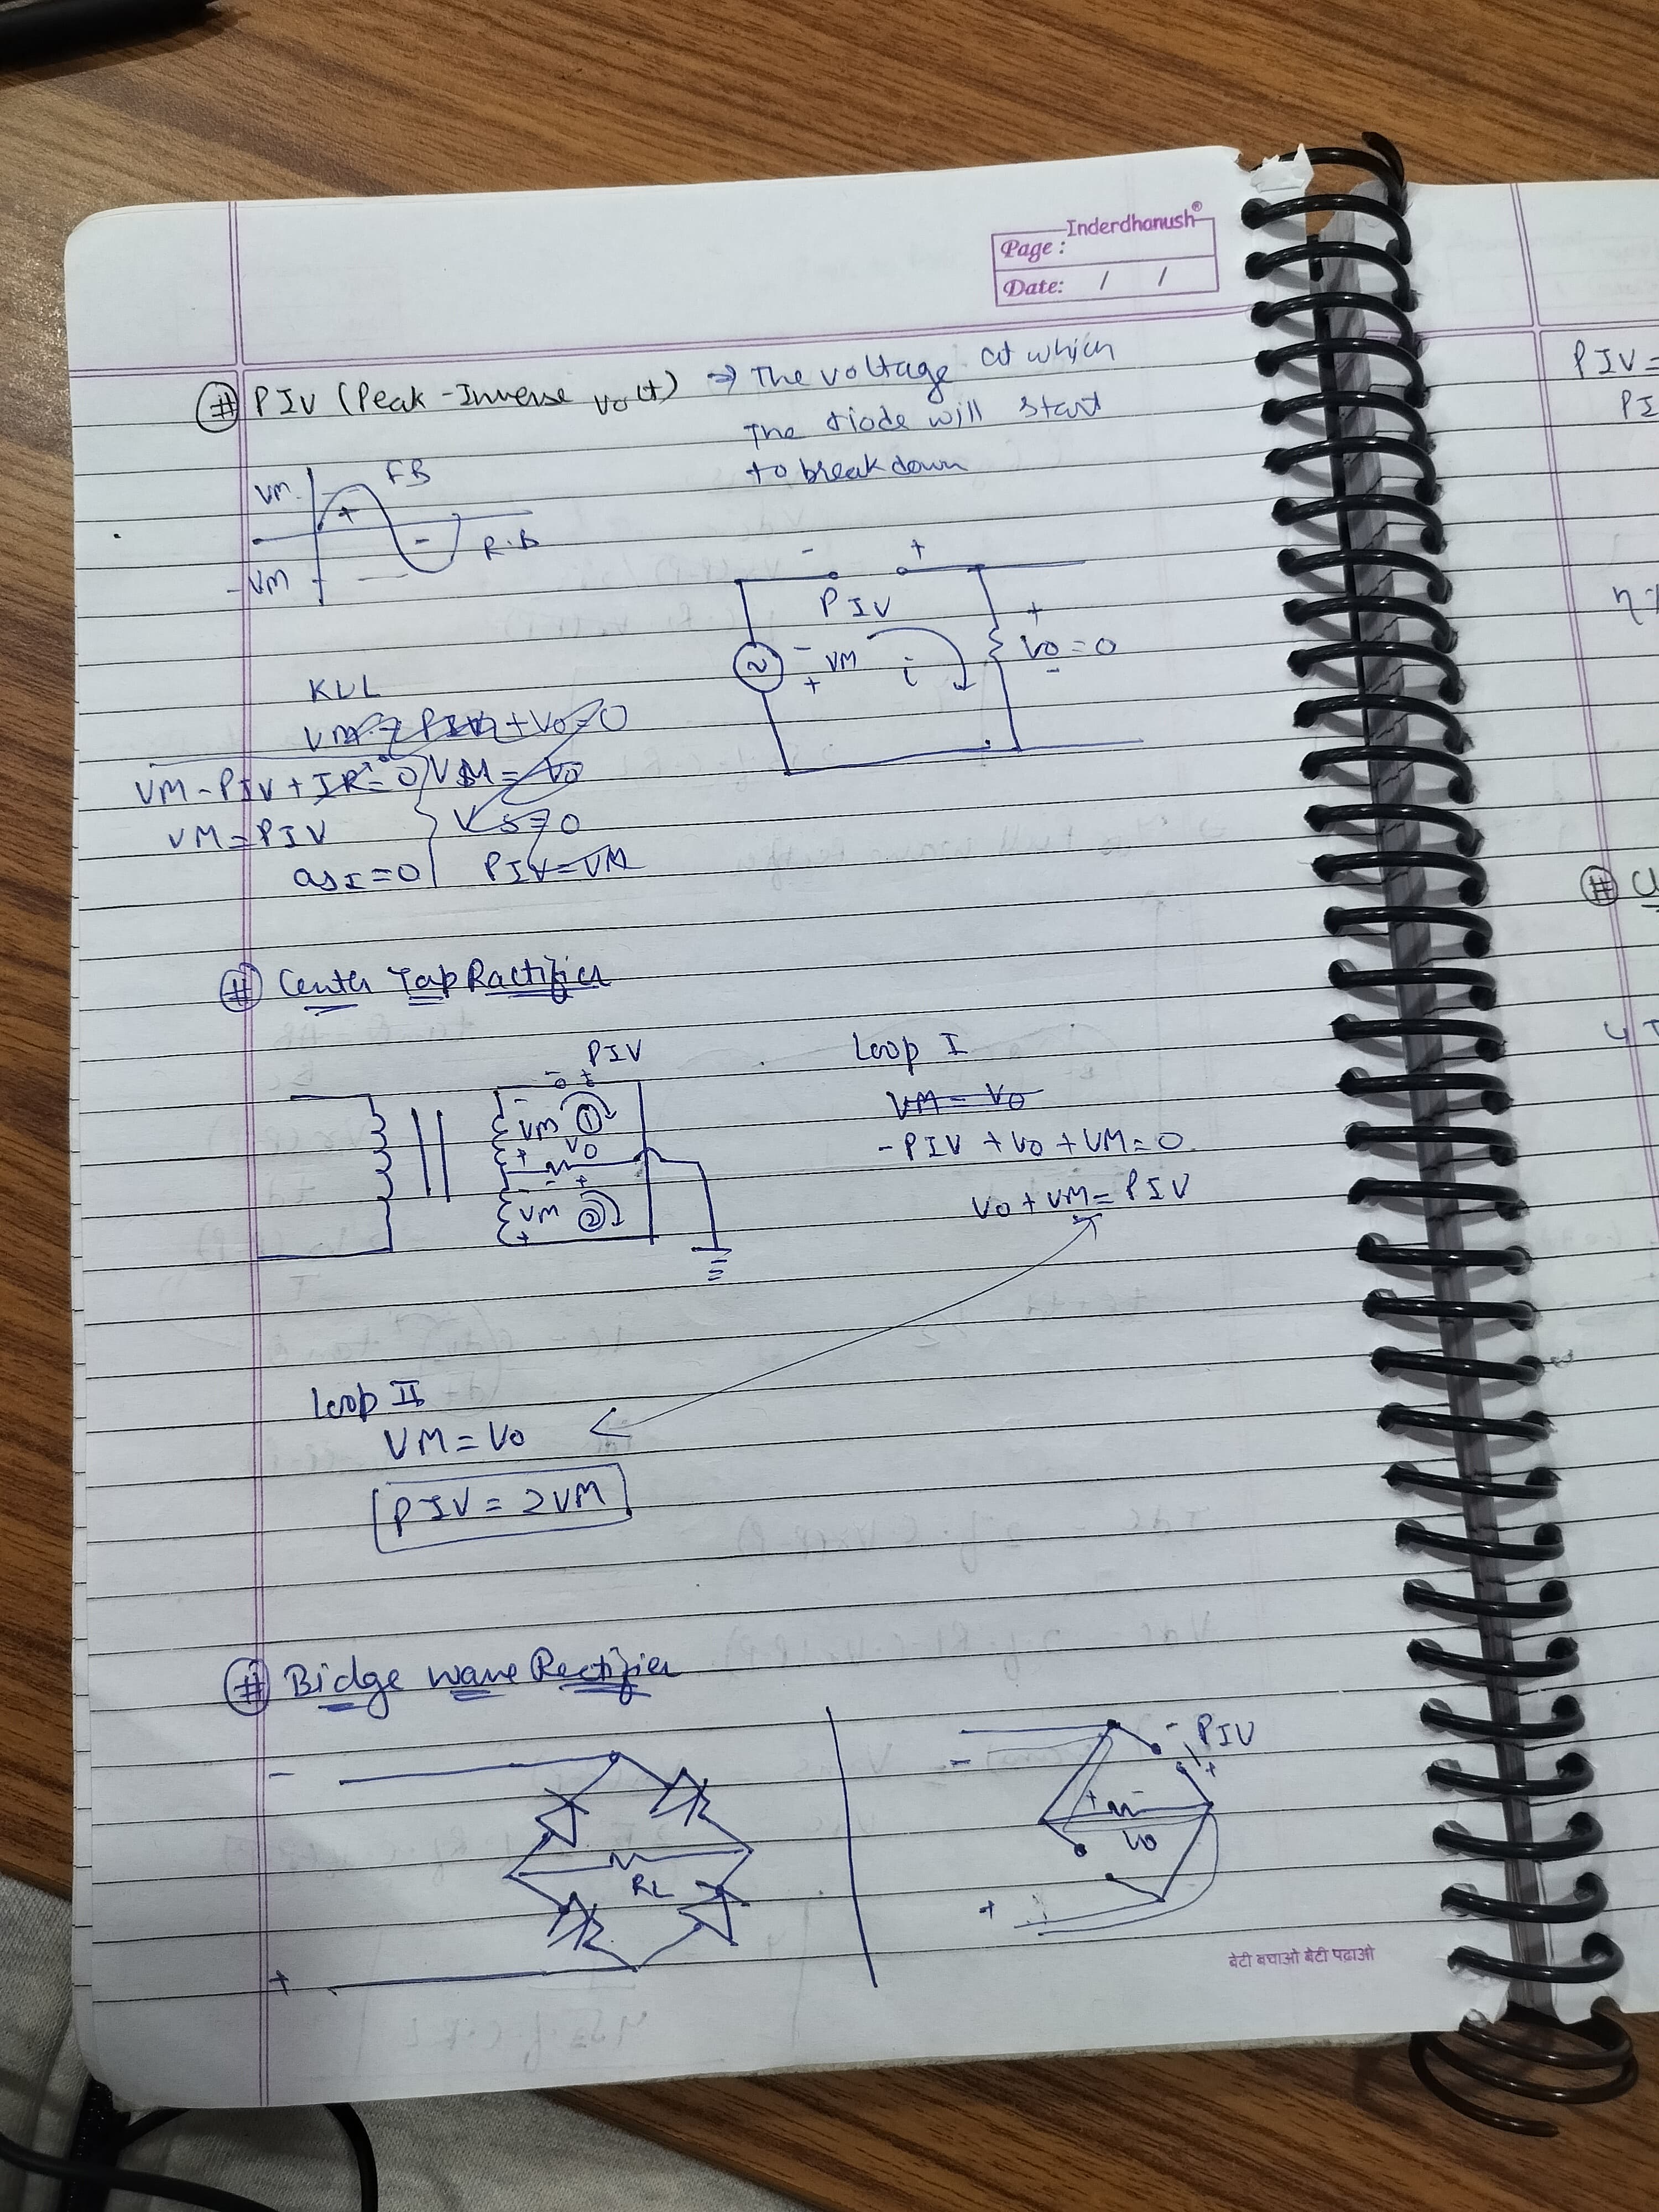 Inderdhanush®
Page :
Date: / /
# PIV (Peak-Inverse volt) → The voltage at which
the diode will start
to breakdown
VM
FB
+
-
R.B
-VM
- +
PIV
+
- VM
+
i
Vo = 0
-
KVL
VM - PIV + IR = 0
VM = Vo
VM = PIV
Vs = 0
as I = 0
PIV = VM
# Center Tap Ractifier
PIV
- +
-
VM ①
+
Vo
- +
-
VM ②
+
Loop I
VM = Vo
- PIV + Vo + VM = 0
Vo + VM = PIV
Loop II
VM = Vo
PIV = 2VM
# Bidge wave Rectifier
-
RL
+
- PIV
+
-
+ -
Vo
+
बेटी बचाओ बेटी पढ़ाओ
PIV =
PI
η%
#